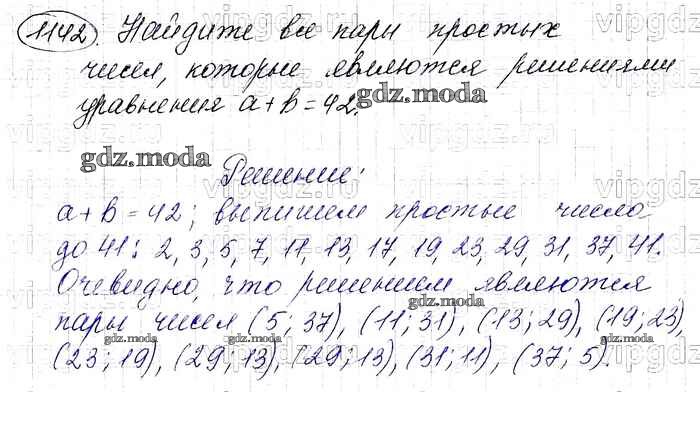 1142. Найдите все пары простых
чисел, которые являются решениями
уравнения a + b = 42.
gdz.moda
gdz.moda
Решение:
a + b = 42; выпишем простые числа
до 41: 2, 3, 5, 7, 11, 13, 17, 19, 23, 29, 31, 37, 41.
Очевидно, что решением являются
gdz.moda
пары чисел (5; 37), (11; 31), (13; 29), (19; 23),
gdz.moda
gdz.moda
(23; 19), (29; 13), (29; 13), (31; 11), (37; 5).
gdz.moda
gdz.moda